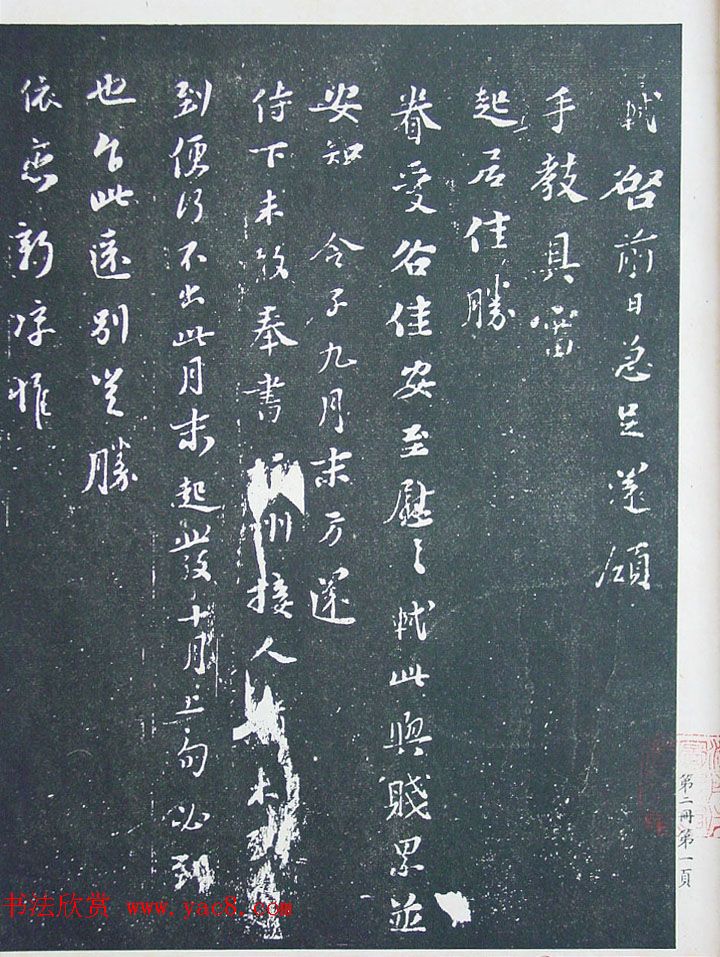 軾啓前日急足還領
手教具審
起居佳勝
眷愛各佳安至慰々軾此與賤累並
安知 令子九月末方還
侍下未敢奉書 州接人猶未到
到便行不出此月末起 十月上旬必到
也乍此遠別豈勝
依戀新凉惟
第二冊第一頁
书法欣赏 www.yac8.com